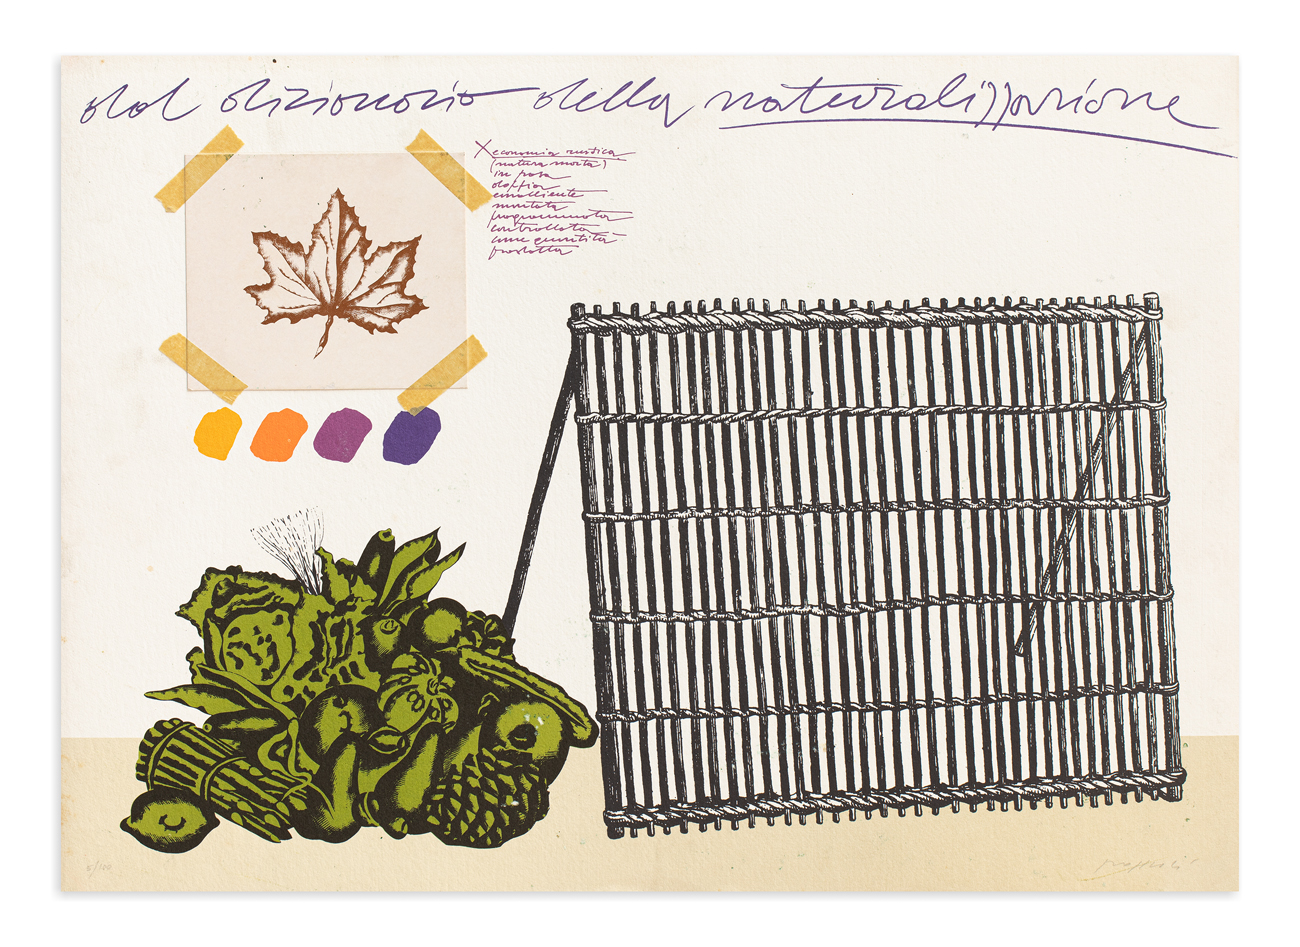 dal dizionario della naturalizzazione
X economia rustica
(natura morta)
in posa
emolliente
montata
programmata
controllata
come quantità
prodotta
6/100